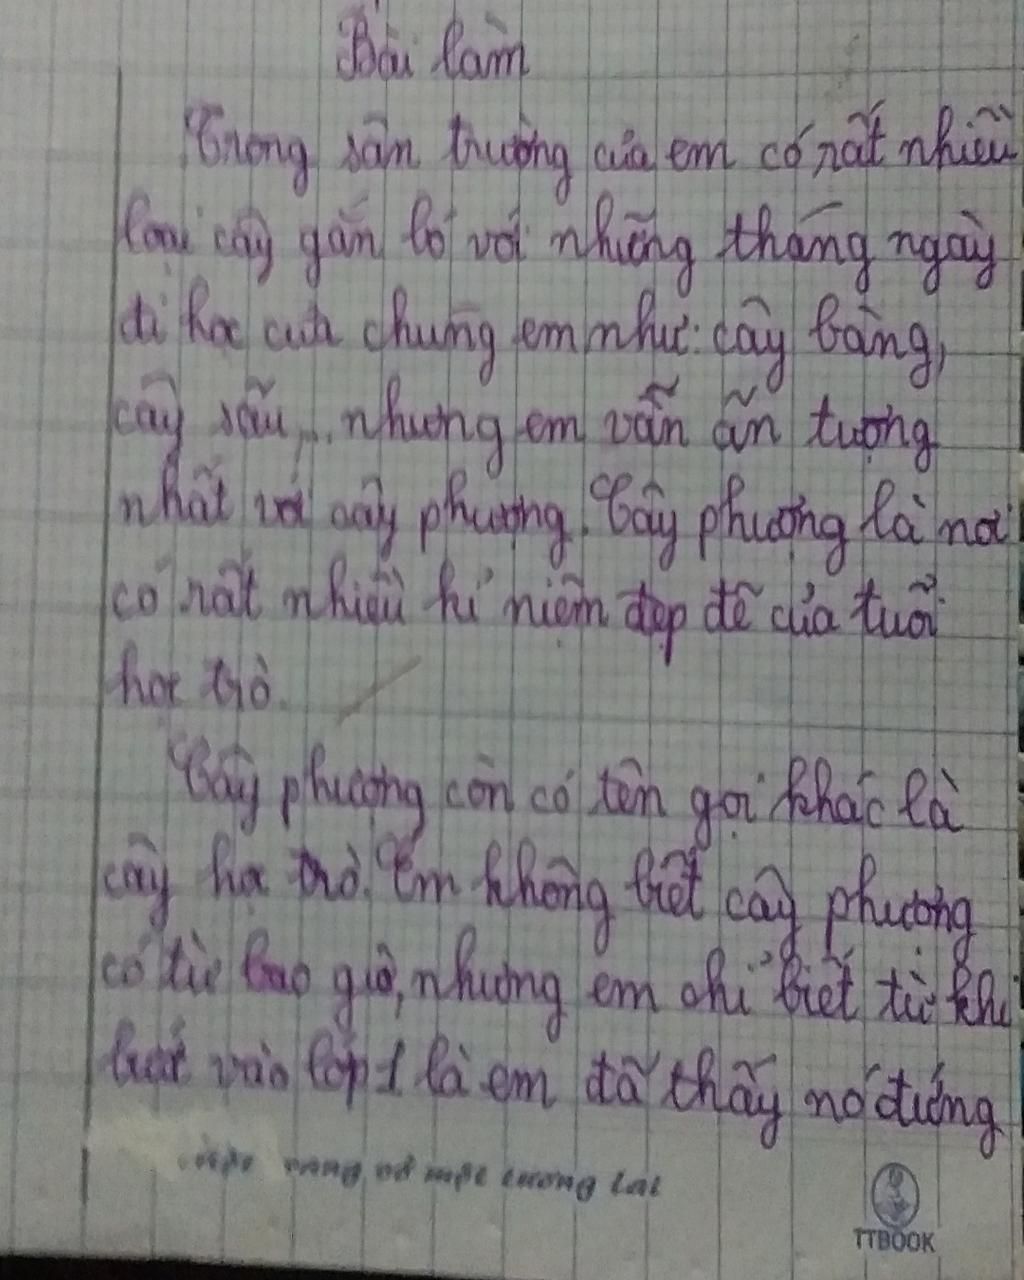 Bài làm
Trong sân trường của em có rất nhiều
loại cây gắn bó với những tháng ngày
đi học của chúng em như: cây bàng,
cây sấu,... nhưng em vẫn ấn tượng
nhất với cây phượng. Cây phượng là nơi
có rất nhiều kỉ niệm đẹp đẽ của tuổi
học trò.
Cây phượng còn có tên gọi khác là
cây học trò. Em không biết cây phượng
có từ bao giờ, nhưng em chỉ biết từ khi
bước vào lớp 1 là em đã thấy nó đứng
TTBOOK